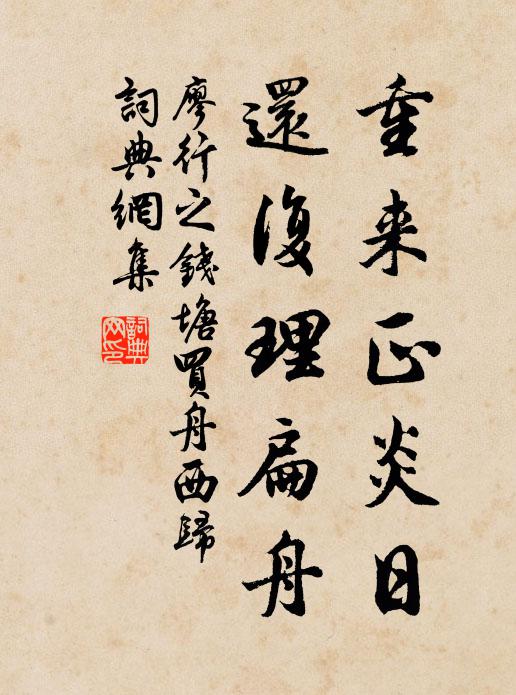 重来正炎日
還復理扁舟
廖行之錢塘買舟西歸
詞典網集
詞典网印